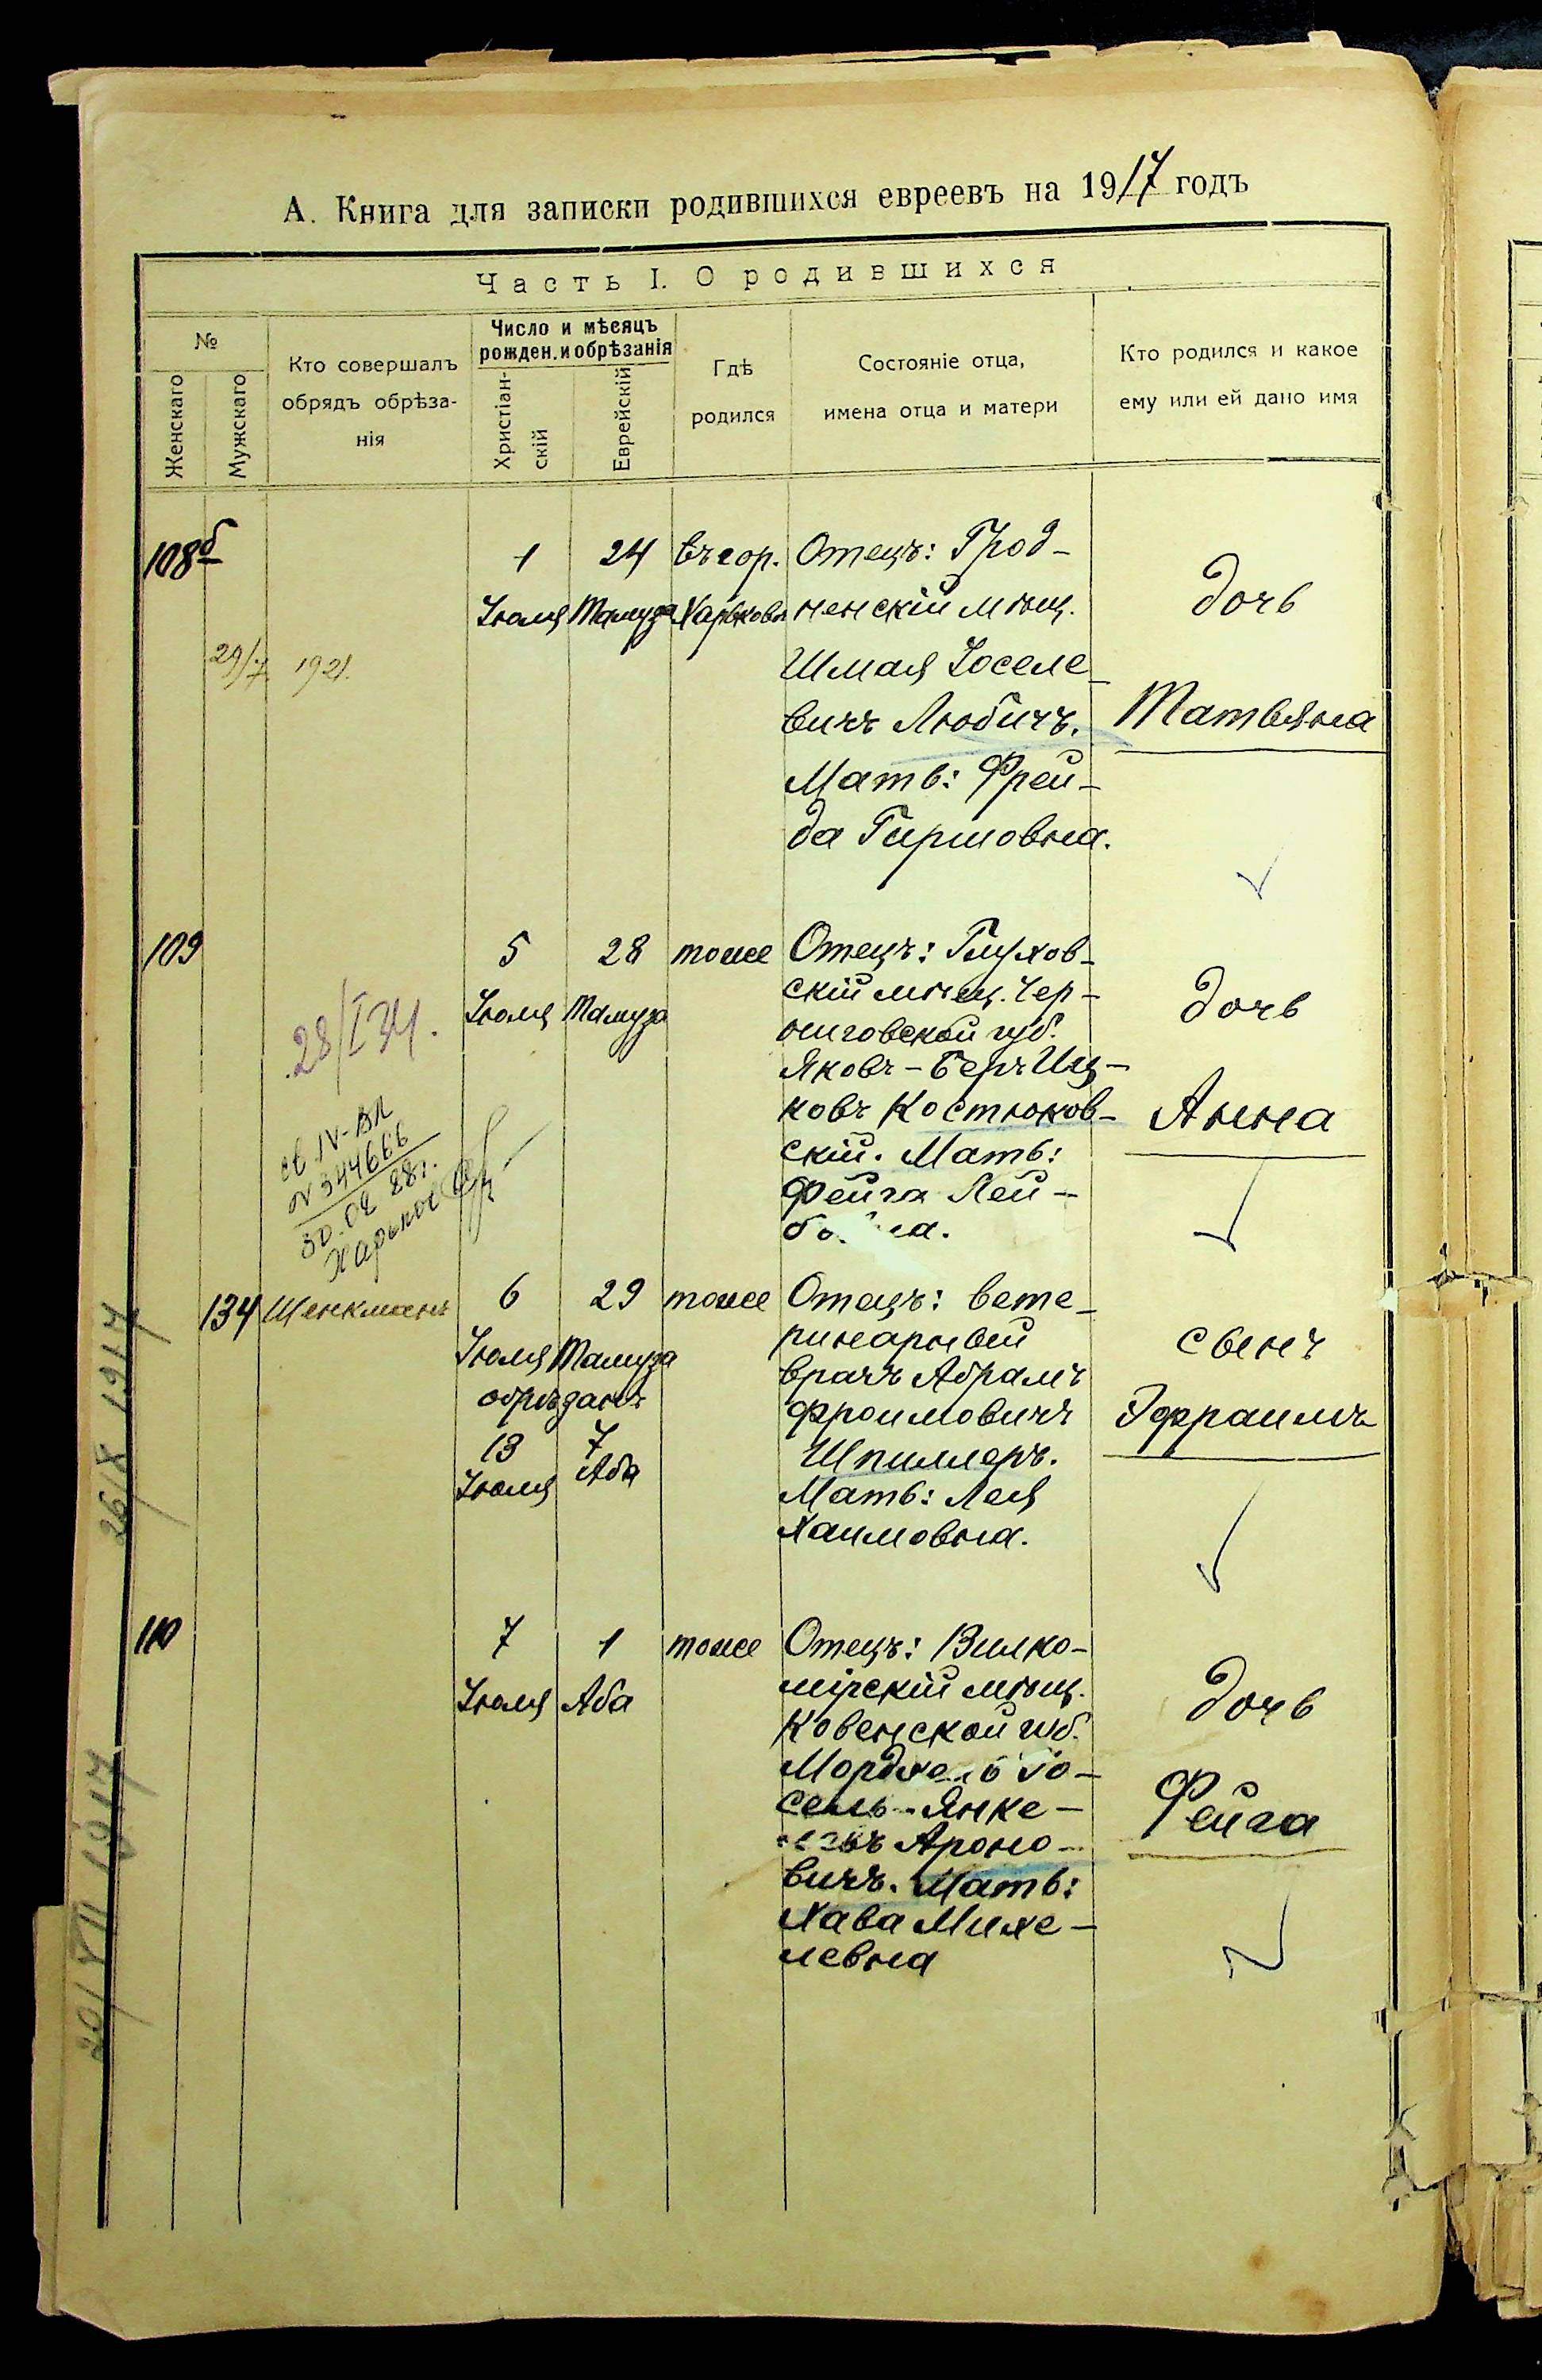 А. Книга для записки родившихся евреевъ на 1917 годъ
Часть I. О родившихся
№
Женскаго
Мужскаго
Кто совершалъ
обрядъ обрѣза-
нія
Число и мѣсяцъ
рожден. и обрѣзанія
Христіан-
скій
Еврейскій
Гдѣ
родился
Состояніе отца,
имена отца и матери
Кто родился и какое
ему или ей дано имя
108б
29/7 1921.
1
Іюля
24
Тамуза
въ гор.
Харькове
Отецъ: Грод-
ненскій мѣщ.
Шмая Іоселе-
вичъ Любичъ.
Мать: Фрей-
да Гиршовна.
дочь
Татьяна
109
28/I 34.
св. IV-ВЛ
N 344666
30.02 28г.
Харьков
5
Іюля
28
Тамуза
тоже
Отецъ: Глухов-
скій мѣщ. Чер-
ниговской губ.
Яковъ-Беръ Иц-
ковъ Костюков-
скій. Мать:
Фейга Лей-
дочь
Анна
134
Шенкманъ
6
Іюля
29
Тамуза
обрѣзанъ
13
Іюля
7
Аба
тоже
Отецъ: вете-
ринарный
врачъ Абрамъ
Фроимовичъ
Шпиллеръ.
Мать: Лея
Хаимовна.
сынъ
Эфраимъ
110
7
Іюля
1
Аба
тоже
Отецъ: Вилко-
мірскій мѣщ.
Ковенской губ.
сель-Янке-
Ароно-
вичъ. Мать:
Хава Михе-
левна
дочь
Фейга
26/X 1917
20/XII 1917